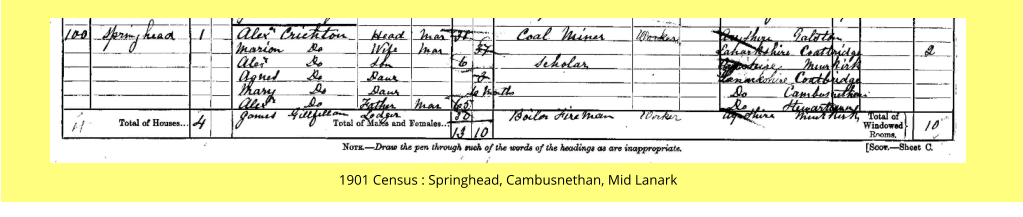 100 Springhead 1 Alexr Crichton Head Mar 31 Coal Miner Worker Ayrshire Galston
Marion Do Wife Mar 27 Lanarkshire Coatbridge 2
Alexr Do Son 6 Scholar Ayrshire Muirkirk
Agnes Do Daur Lanarkshire Coatbridge
Mary Do Daur Months Do Cambusnethan
Alexr Do Father Mar Do
11 Total of Houses... 4 James Gillfillan Lodger 30 Boiler Fireman Worker Ayrshire Muirkirk Total of Windowed Rooms. 10
Total of Males and Females.. 13 10
NOTE.—Draw the pen through such of the words of the headings as are inappropriate. [Scot.—Sheet C.
1901 Census : Springhead, Cambusnethan, Mid Lanark